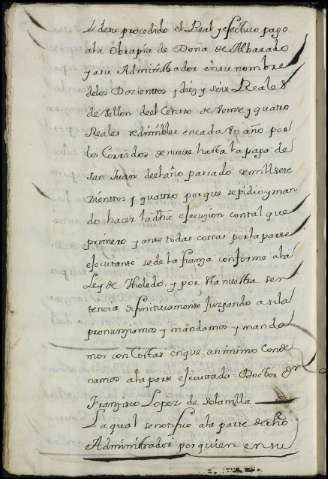 dero procedido el Real y efectivo pago
a la Obrapia de Doña de Albarado
y a su Administrador en su nombre
de los Dozientos y diez y seis Reales
de vellon deel Censo de Veinte y quatro
Reales redimibles en cada Un año por
los Corridos se nueve hasta la paga de
san Juan del año pasado de mill sete
zientos y quatro porque se pidio y man
do hacer la dha ejecuzion con tal que
primero y ante todas cosas por la parte
ejecutante se de la fianza conforme a la
Ley de Tholedo, y por Nra sen
tencia Difinitivamente Juzgando asi lo
pronunziamos y mandamos y manda
mos con Costas en que, asimismo Conde
namos a la parte ejecutada Doctor Dn
Francisco Lopez de
La qual se notifico a la parte de dho
Administrador por quien en su